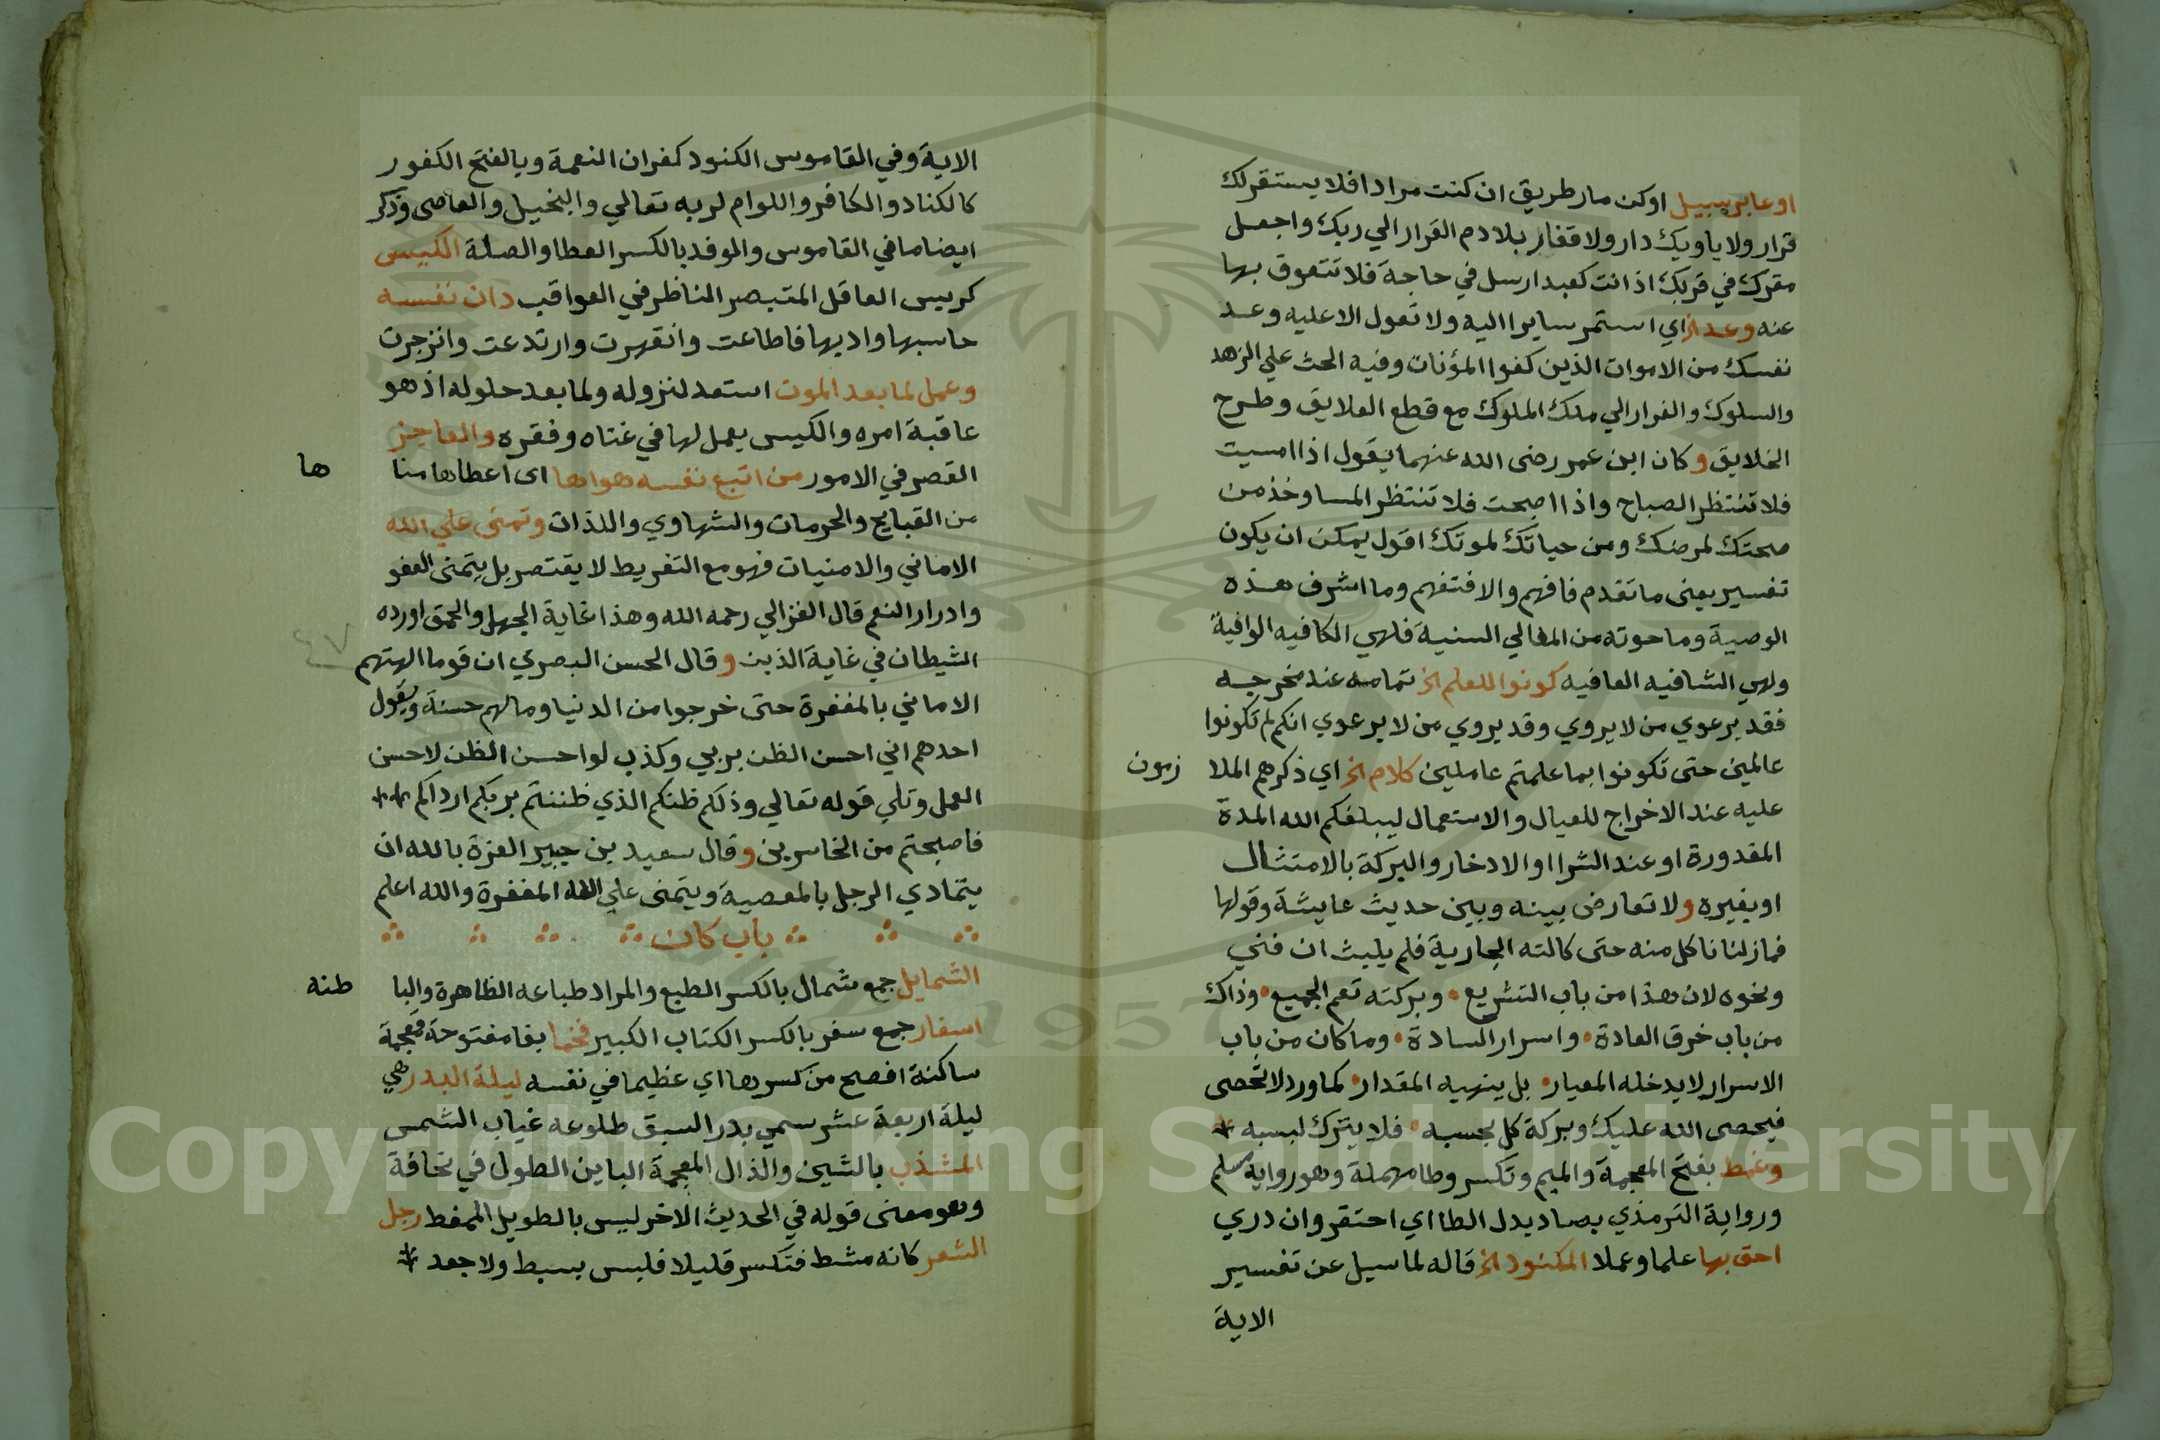 او عابر سبيل او كن مار طريق ان كنت مرادا فلا يستقر لك
قرار ولا ياويك دار ولا قفار بلا دم الفرار الي ربك واجعل
مقرك في قربك اذ انت كعبد ارسل في حاجة فلا تتعوق بها
عنه وعد اخ اي استمر سايرا اليه ولا تعول الا عليه وعد
نفسك من الاموات الذين كفوا المؤنات وفيه الحث علي الزهد
والسلوك والفرار الي ملك الملوك مع قطع العلايق وطرح
الخلايق وكان ابن عمر رضى الله عنهما يقول اذا امسيت
فلا تنتظر الصباح واذا اصبحت فلا تنتظر المسا وخذ من
صحتك لمرضك ومن حياتك لموتك اقول يمكن ان يكون
تفسير بعنى ما تقدم فافهم والا فتفهم وما اشرف هذه
الوصية وما حوته من المعالي السنية فلهي الكافيه الوافية
ولهي الشافيه العافيه كونوا للعلم اخ تمامه عند مخرجه
فقد يرعوي من لا يروي وقد يروي من لا يرعوي انكم لم تكونوا
عالمين حتى تكونوا بما علمتم عاملين كلام اخ اي ذكرهم الملا زمون
عليه عند الاخراج للعيال والاستعمال ليبلغكم الله المدة
المقدورة او عند الشرا او الادخار والبركة بالامتثال
او بغيره ولا تعارض بينه وبين حديث عايشة وقولها
فما زلنا ناكل منه حتى كالته الجارية فلم يلبث ان فني
ونحوه لان هذا من باب التشريع وبركته تعم الجميع وذاك
من باب خرق العادة واسرار السادة وما كان من باب
الاسرار لا يدخله المعيار بل ينهيه المقدار كما ورد لا تحصى
فيحصى الله عليك وبركة كل بحسبه فلا يترك لبسبه
وغمط بفتح المعجمة والميم وتكسر وطا مهملة وهو رواية مسلم
ورواية الترمذي بصاد بدل الطا اي احتقر وان دري
احق بها علما وعملا الكنود اخ قاله لما سيل عن تفسير
الاية
الاية وفي القاموس الكنود كفران النعمة وبالفتح الكفور
كالكناد والكافر واللوام لربه تعالي والبخيل والعاصى وذكر
ايضا ما في القاموس والموفد بالكسر العطا والصلة الكيس
كريس العاقل المتبصر الناظر في العواقب دان نفسه
حاسبها واديها فاطاعت وانقهرت وارتدعت وانزجرت
وعمل لما بعد الموت استعد لنزوله ولما بعد حلوله اذ هو
عاقبة امره والكيس يعمل لها في غناه وفقره والعاجز
القصر في الامور من اتبع نفسه هواها اى اعطاها منا ها
من القبايح والحرمات والشهاوي واللذات وتمنى علي الله
الاماني والامنيات فهو مع التفريط لا يقتصر بل يتمنى العفو
وادرار النعم قال الغزالي رحمه الله وهذا غاية الجهل والحمق اورده
الشيطان في غاية الذين وقال الحسن البصري ان قوما الهتهم
الاماني بالمغفرة حتى خرجوا من الدنيا وما لهم حسنة ويقول
احدهم اني احسن الظن بربي وكذب لو احسن الظن لاحسن
العمل وتلي قوله تعالي وذلكم ظنكم الذي ظننتم بربكم ارداكم
فاصبحتم من الخاسرين وقال سعيد بن جبير الغرة بالله ان
يتمادي الرجل بالمعصية ويتمنى علي الله المغفرة والله اعلم
باب كان
الشمايل جمع شمال بالكسر الطبع والمراد طباعه الظاهرة والبا طنه
اسفار جمع سفر بالكسر الكتاب الكبير فخما بفا مفتوحة فمعجمة
ساكنة افصح من كسرها اي عظيما في نفسه ليلة البدر هي
ليلة اربعة عشر سمي بدرا لسبق طلوعه غياب الشمس
المشذب بالشين والذال المعجمة الباين الطول في نحافة
وهو معنى قوله في الحديث الاخر ليس بالطويل الممغط رجل
الشعر كانه مشط فتكسر قليلا فليس بسبط ولا جعد
٤٧
Copyright © King Saud University
1957